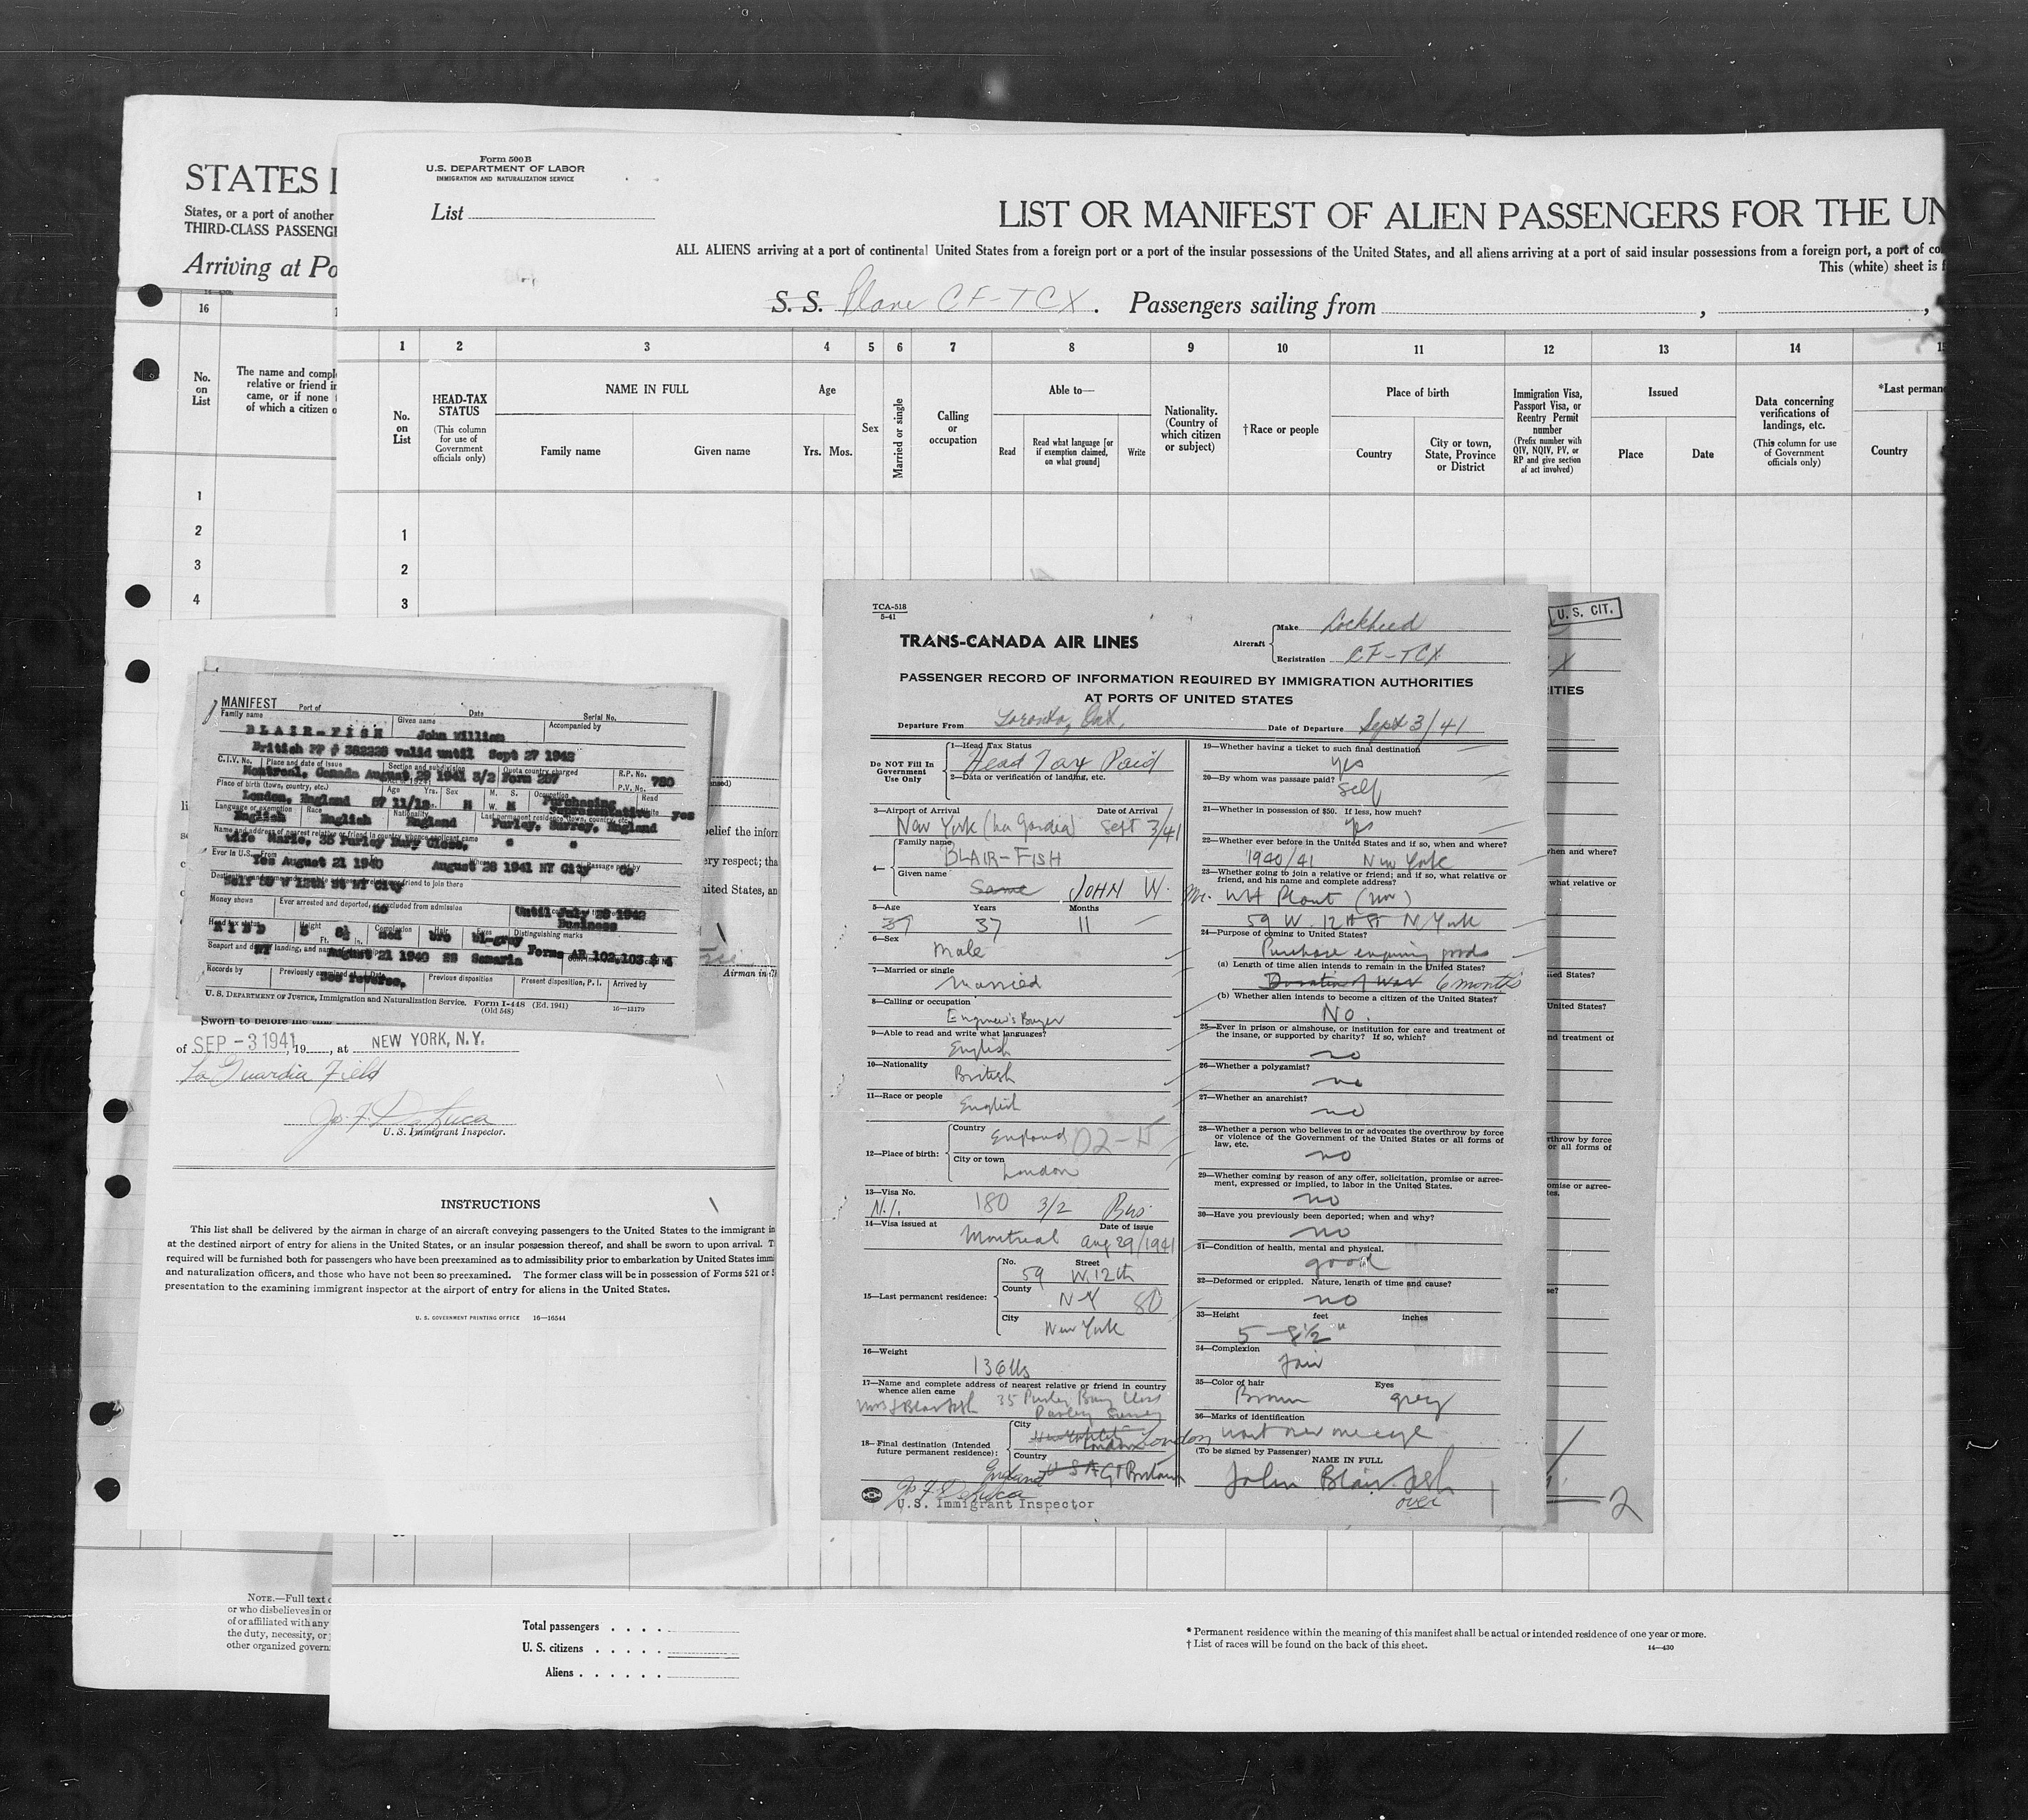 STATES I
States, or a port of another
THIRD-CLASS PASSENG
Arriving at Po
16
No.
on
List
The name and compl
relative or friend in
came, or if none
of which a citizen o
1
2
3
4
NOTE.—Full text
or who disbelieves in or
of or affiliated with any
the duty, necessity, or
other organized govern
Form 500 B
U.S. DEPARTMENT OF LABOR
IMMIGRATION AND NATURALIZATION SERVICE
List
LIST OR MANIFEST OF ALIEN PASSENGERS FOR THE UN
ALL ALIENS arriving at a port of continental United States from a foreign port or a port of the insular possessions of the United States, and all aliens arriving at a port of said insular possessions from a foreign port, a port of co
This (white) sheet is f
S. S. Plane CF-TCX. Passengers sailing from , ,
1 2 3 4 5 6 7 8 9 10 11 12 13 14 15
No.
on
List
HEAD-TAX
STATUS
(This column
for use of
Government
officials only)
NAME IN FULL
Family name Given name
Age
Yrs. Mos.
Sex
Married or single
Calling
or
occupation
Able to—
Read
Read what language [or
if exemption claimed,
on what ground]
Write
Nationality.
(Country of
which citizen
or subject)
†Race or people
Place of birth
Country
City or town,
State, Province
or District
Immigration Visa,
Passport Visa, or
Reentry Permit
number
(Prefix number with
QIV, NQIV, PV, or
RP and give section
of act involved)
Issued
Place Date
Data concerning
verifications of
landings, etc.
(This column for use
of Government
officials only)
*Last perman
Country
1
2
3
MANIFEST Port of Date Serial No.
Family name Given name Accompanied by
BLAIR-FISH John William
British PP # 382226 valid until Sept 27 1942
C.I.V. No. Place and date of issue Section and subdivision Quota country charged R.P. No.
Montreal, Canada August 29 1941 3/2 Form 257 P.V. No. 780
Place of birth (town, country, etc.) Age Yrs. Sex M. S. Occupation Read
London, England 37 11/12 M W. M Purchasing
Representative Write yes
Language or exemption Race Nationality Last permanent residence (town, country, etc.)
English English England Purley, Surrey, England
Name and address of nearest relative or friend in country whence applicant came
wife Marie, 35 Purley Bury Close, " "
Ever in U.S. From Passage paid by
Yes August 21 1940 August 28 1941 NY City Co
Self 59 W 12th St NY City
Money shown Ever arrested and deported, or excluded from admission
no Until July 29 1942
Business
Head tax status Height Complexion Hair Eyes Distinguishing marks
Ft. In.
PAID 5 8½ med bro bl-gray Forms AR 102,103 & 4
Seaport and date of landing, and name of
NY August 21 1940 SS Samaria
Records by Previously examined at Date Previous disposition Present disposition, P. I. Arrived by
See reverse.
U. S. DEPARTMENT OF JUSTICE, Immigration and Naturalization Service. Form I-448 (Ed. 1941)
(Old 548) 16—13179
ensed)
belief the inform
ery respect; tha
nited States, an
Airman in
Sworn to before me this
of SEP -3 1941, 19 , at NEW YORK, N.Y.
La Guardia Field
Jos. F. DeLuca
U. S. Immigrant Inspector.
INSTRUCTIONS
This list shall be delivered by the airman in charge of an aircraft conveying passengers to the United States to the immigrant in
at the destined airport of entry for aliens in the United States, or an insular possession thereof, and shall be sworn to upon arrival. T
required will be furnished both for passengers who have been preexamined as to admissibility prior to embarkation by United States immi
and naturalization officers, and those who have not been so preexamined. The former class will be in possession of Forms 521 or 5
presentation to the examining immigrant inspector at the airport of entry for aliens in the United States.
U. S. GOVERNMENT PRINTING OFFICE 16—16544
TCA-518
5-41
TRANS-CANADA AIR LINES
Aircraft
Make Lockheed
Registration CF-TCX
PASSENGER RECORD OF INFORMATION REQUIRED BY IMMIGRATION AUTHORITIES
AT PORTS OF UNITED STATES
Departure From Toronto, Ont. Date of Departure Sept 3/41
Do NOT Fill In
Government
Use Only
1—Head Tax Status
Head Tax Paid
2—Data or verification of landing, etc.
3—Airport of Arrival Date of Arrival
New York (La Gardia) Sept 3/41
4—
Family name
BLAIR-FISH
Given name
Same JOHN W.
5—Age Years Months
37 37 11
6—Sex
Male
7—Married or single
Married
8—Calling or occupation
Engineer's Buyer
9—Able to read and write what languages?
English
10—Nationality
British
11—Race or people
English
12—Place of birth:
Country
England 02-H
City or town
London
13—Visa No.
N.I. 180 3/2 Bus.
14—Visa issued at Date of issue
Montreal Aug 29/1941
15—Last permanent residence:
No. Street
59 W. 12th
County
N-Y 80
City
New York
16—Weight
136 lbs
17—Name and complete address of nearest relative or friend in country
whence alien came
Mrs J Blairfish 35 Purley Bury Close
Purley Surrey
18—Final destination (Intended
future permanent residence):
City
London London
Country
England U S A Gt Britain
Jos. F. DeLuca
U.S. Immigrant Inspector
19—Whether having a ticket to such final destination
yes
20—By whom was passage paid?
Self
21—Whether in possession of $50. If less, how much?
yes
22—Whether ever before in the United States and if so, when and where?
1940/41 New York
23—Whether going to join a relative or friend; and if so, what relative or
friend, and his name and complete address?
Mr. WH Plant
59 W. 12th St N. York
24—Purpose of coming to United States?
Purchase enquiring goods
(a) Length of time alien intends to remain in the United States?
Duration of War 6 months
(b) Whether alien intends to become a citizen of the United States?
No.
25—Ever in prison or almshouse, or institution for care and treatment of
the insane, or supported by charity? If so, which?
no
26—Whether a polygamist?
no
27—Whether an anarchist?
no
28—Whether a person who believes in or advocates the overthrow by force
or violence of the Government of the United States or all forms of
law, etc.
no
29—Whether coming by reason of any offer, solicitation, promise or agree-
ment, expressed or implied, to labor in the United States.
no
30—Have you previously been deported; when and why?
no
31—Condition of health, mental and physical.
good
32—Deformed or crippled. Nature, length of time and cause?
no
33—Height feet inches
5 - 8½"
34—Complexion
Fair
35—Color of hair Eyes
Brown grey
36—Marks of identification
wart over one eye
(To be signed by Passenger)
NAME IN FULL
John Blair-Fish
over
U. S. CIT.
X
ITIES
hen and where?
what relative or
ted States?
United States?
nd treatment of
rthrow by force
or all forms of
omise or agree-
tes.
se?
2
Total passengers . . . .
U. S. citizens . . . . .
Aliens . . . . . .
* Permanent residence within the meaning of this manifest shall be actual or intended residence of one year or more.
† List of races will be found on the back of this sheet.
14—430